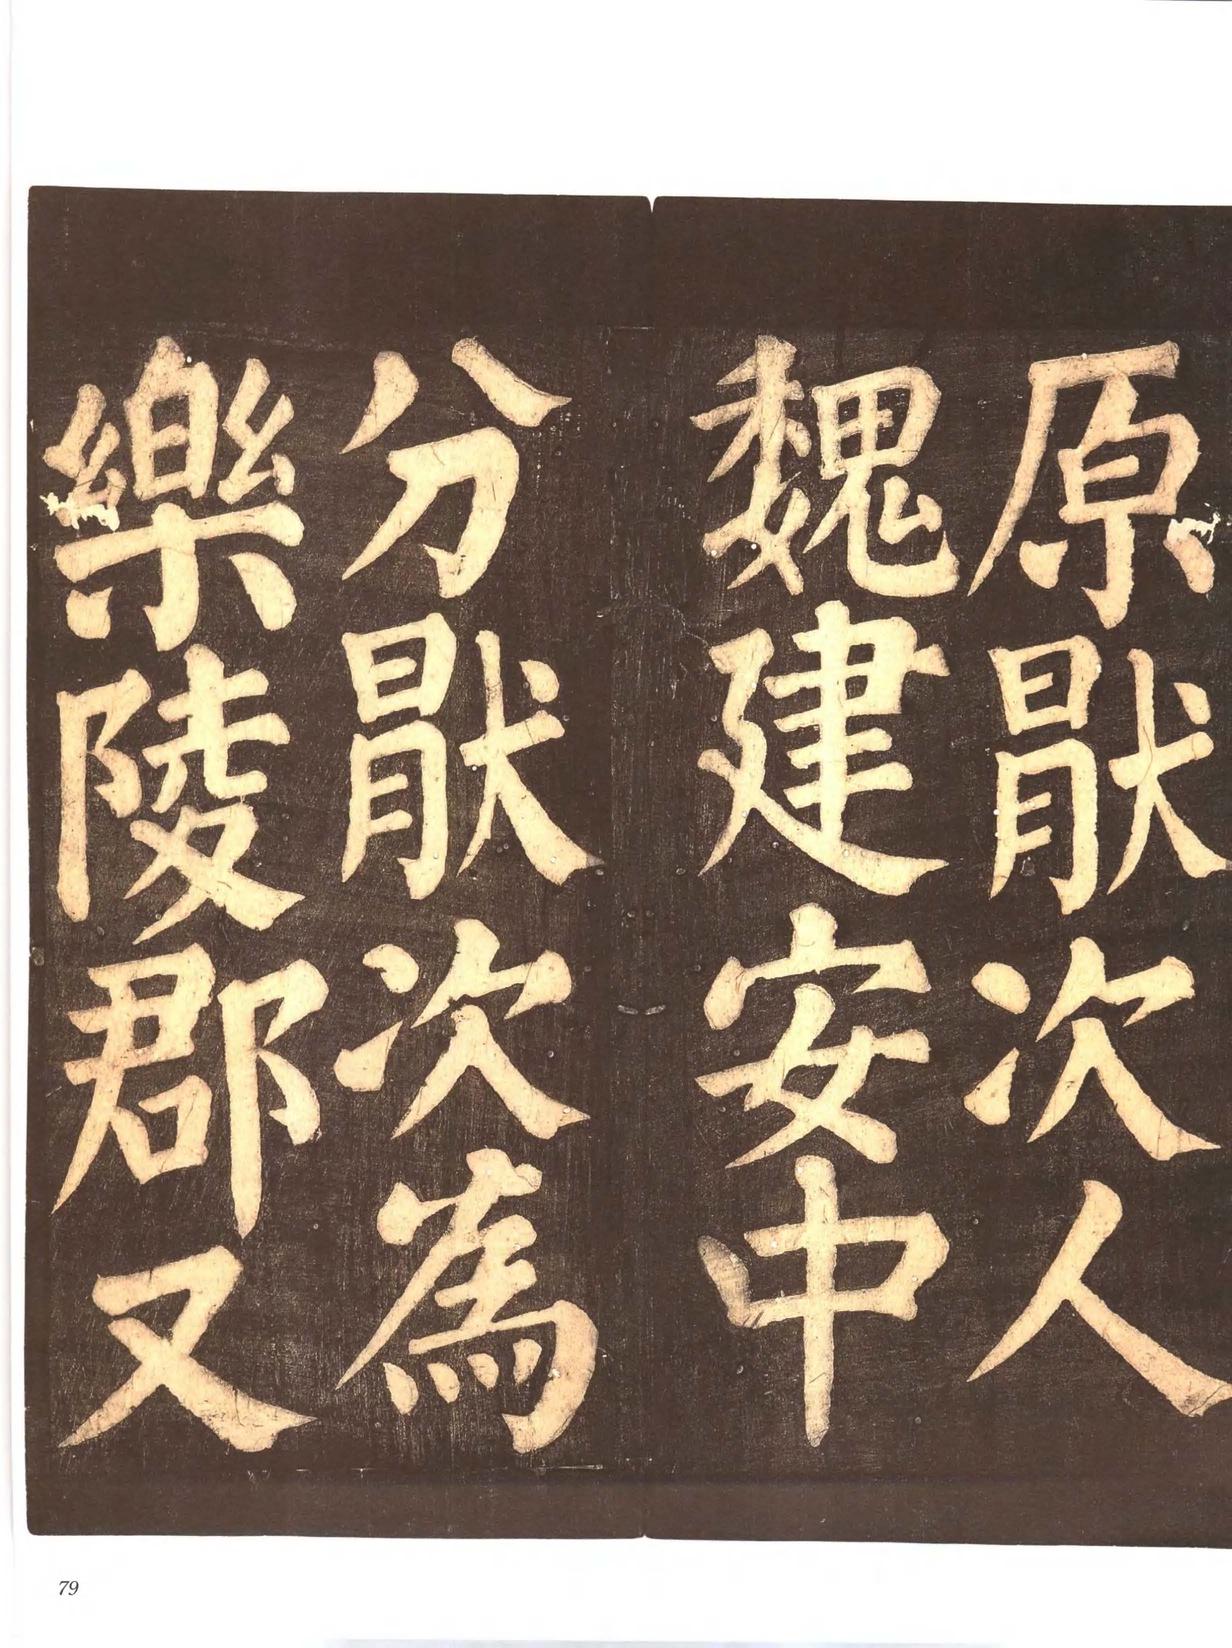 原猒次人
魏建安中
分猒次為
樂陵郡又
79